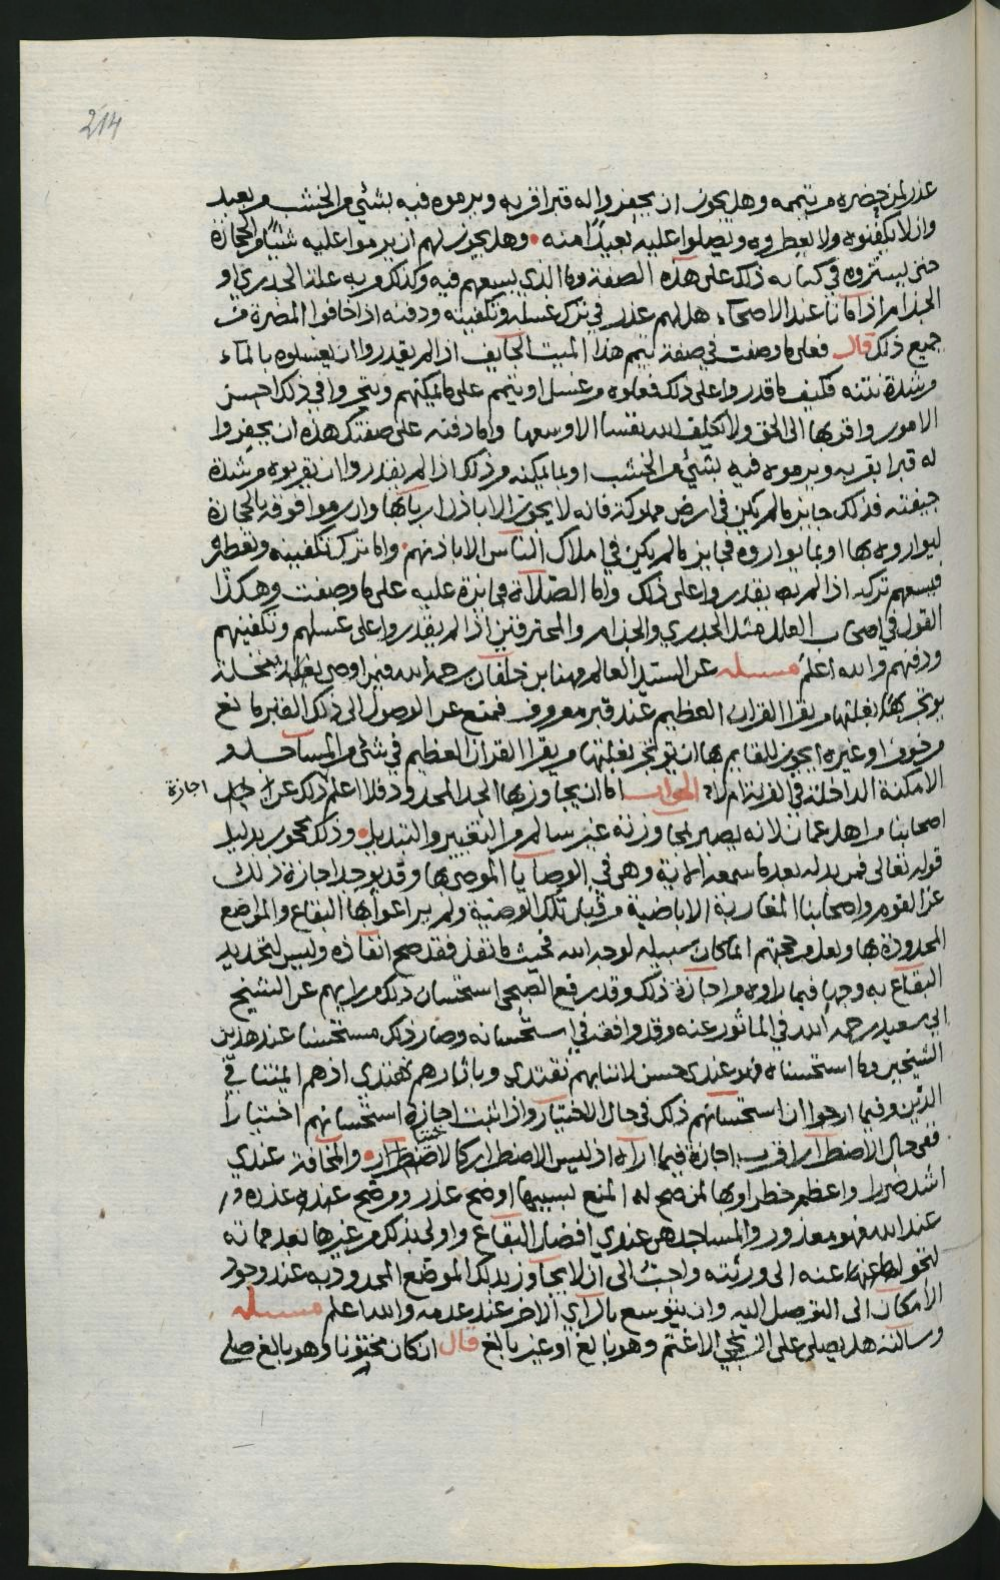 214
عذر لمن حضره من تيممه وهل يجوز ان يحفروا له قبرا قربه ويرموه فيه بشئي من الخشب من بعيد
وان لا يكفنوه ولا يعطروه ويصلوا عليه بعيدا منه وهل يجوز لهم ان يرموا عليه شيئا من الحجارة
حتى يستروه في كتابه ذلك على هذه الصفة وما الذي يسعهم فيه وكذلك من به علة الجدري او
الجذام اذا مات عند الاصحاء هل لهم عذر في ترك غسله وتكفينه ودفنه اذا خافوا المضرة من
جميع ذلك قال فعلى ما وصفت في صفة تيمم هذا الميت الجايف اذا لم يقدروا ان يغسلوه بالماء
من شدة نتنه فكيف ما قدروا على ذلك فعلوه من غسل او تيمم على ما يمكنهم ويتحروا في ذلك احسن
الامور واقربها الى الحق ولا يكلف الله نفسا الا وسعها واما دفنه على صفتك هذه ان يحفروا
له قبرا بقربه ويرموه فيه بشئي من الخشب او بما يمكنه من ذلك اذا لم يقدروا ان يقربوه من شدة
جيفته فذلك جايز ما لم يكن في ارض مملوكة فانه لا يجوز الا باذن اربابها وان رموا فوقه بالحجارة
ليواروه بها او بما يواروه فجايز ما لم يكن في املاك الناس الا باذنهم واما ترك تكفينه وتعطيره
فيسعهم تركه اذا لم يقدروا على ذلك واما الصلاة فجايزة عليه على ما وصفت وهكذا
القول في اصحاب العلل مثل الجدري والجذام والمحترقين اذا لم يقدروا على غسلهم وتكفينهم
ودفنهم والله اعلم مسئله عن السيد العالم مهنا بن خلفان رحمه الله فيمن اوصى بغلة نخلة
يوتجر بغلتها من يقرا القران العظيم عند قبر معروف فمنع عن الوصول الى ذلك القبر مانع
من خوف او غيره ايجوز للقايم بها ان يوتجر بغلتها من يقرا القران العظيم في شئي من المساجد و
الامكنة الداخلة في القرية ام لا الجواب اما ان يجاوز بها الحد المحدود فلا اعلم ذلك عن اجازة
اصحابنا من اهل عمان لانه يصير بمجاوزته غير سالم من التغيير والتبديل وذلك محجور بدليل
قوله تعالى فمن بدله بعد ما سمعه الاية وهي في الوصايا الموصى بها وقد يوجد اجازة ذلك
عن القوم واصحابنا المغاربة الاباضية من قبل تلك الوصية ولم يراعوا بها البقاع والمواضع
المحدودة بها ولعل من حجتهم ان ما كان سبيله لوجه الله فحيث ما نفذ فقد صح انفاذه وليس لتحديد
البقاع به وجها فيما راوه من اجازة ذلك وقد رفع الصبحي استحسان ذلك من رايهم عن الشيخ
ابي سعيد رحمه الله في الماثور عنه وقد وافقه في استحسانه وصار ذلك مستحسنا عند هذين
الشيخين وما استحسناه فهو عندي حسن لاننا بهم نقتدي وباثارهم نهتدي اذ هم ائمتنا في
الدين وفيما ارجوا ان استحسانهم ذلك في حال الاختيار واذا ثبت اجازة استحسانهم اختيارا
ففي حال الاضطرار اقرب اجازة فيما اراه اذ ليس الاضطرار كالاختيار والمخافة عندي
اشد ضررا واعظم خطرا وبها لمن صح له المنع لسببها اوضح عذر ومن صح عنده عذره
عند الله فهو معذور والمساجد هي عندي افضل البقاع واولى بذلك من غيرها بعد مماته
عنه الى ورثته واحب الى ان لا يجاوز بذلك الموضع المحدود به عند وجود
الامكان الى التوصل اليه وان يتوسع بالراي الاخر عند عدمه والله اعلم مسئله
وسالته هل يصلى على الزنجي الاغتم وهو بالغ او غير بالغ قال ان كان مختونا وهو بالغ صلي